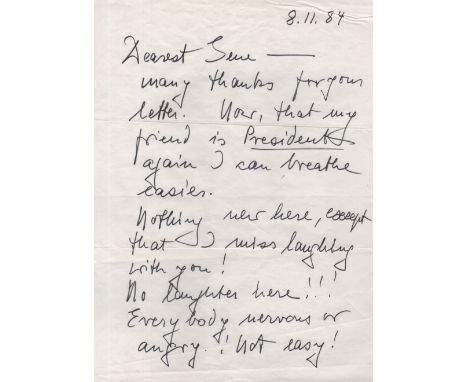 8.11.84
Dearest Gene —
many thanks for your
letter. Now, that my
friend is President
again I can breathe
easier.
Nothing new here, except
that I miss laughing
with you!
No laughter here!!!
Everybody nervous or
angry!! Not easy!